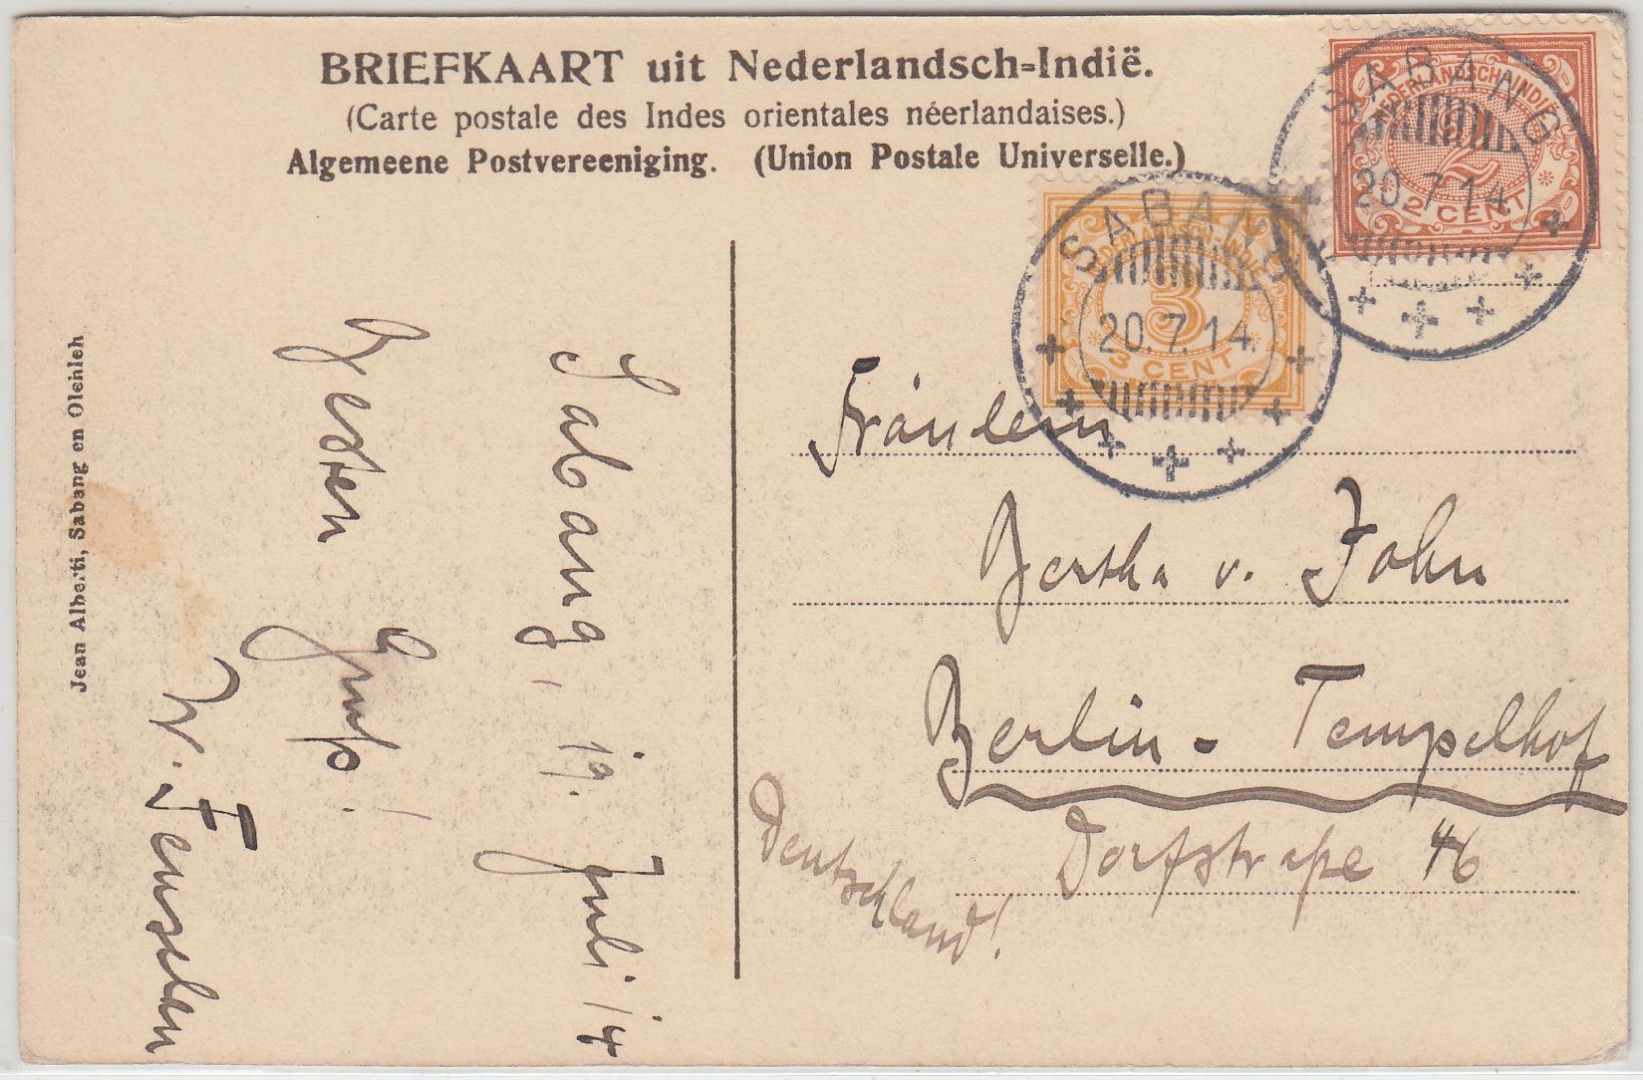 BRIEFKAART uit Nederlandsch-Indië.
(Carte postale des Indes orientales néerlandaises.)
Algemeene Postvereeniging. (Union Postale Universelle.)
NEDERLANDSCH-INDIË
2
2 CENT
SABANG
20.7.14.
NEDERLANDSCH-INDIË
3
3 CENT
SABANG
20.7.14.
Jean Alberti, Sabang en Olehleh
Sabang, 19. Juli 14
Besten
Gruß!
W. Fenselau
Fräulein
Bertha v. John
Berlin-Tempelhof
Dorfstraße 46
Deutschland!